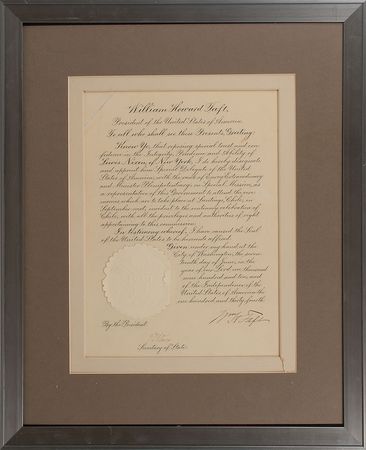 William Howard Taft,
President of the United States of America.
To all who shall see these Presents, Greeting:
Know Ye, that reposing special trust and con-
fidence in the Integrity, Prudence and Ability of
Lewis Nixon, of New York, I do hereby designate
and appoint him Special Delegate of the United
States of America, with the rank of Envoy Extraordinary
and Minister Plenipotentiary on Special Mission, as
a representative of this Government to attend the cere-
monies which are to take place at Santiago, Chile, in
September next, incident to the centenary celebration of
Chile, with all the privileges and authorities of right
appertaining to this commission.
In testimony whereof, I have caused the Seal
of the United States to be hereunto affixed.
Given under my hand at the
City of Washington, the seven-
teenth day of June, in the
year of our Lord one thousand
nine hundred and ten, and
of the Independence of the
United States of America the
one hundred and thirty-fourth.
Wm H Taft
By the President:
Secretary of State.